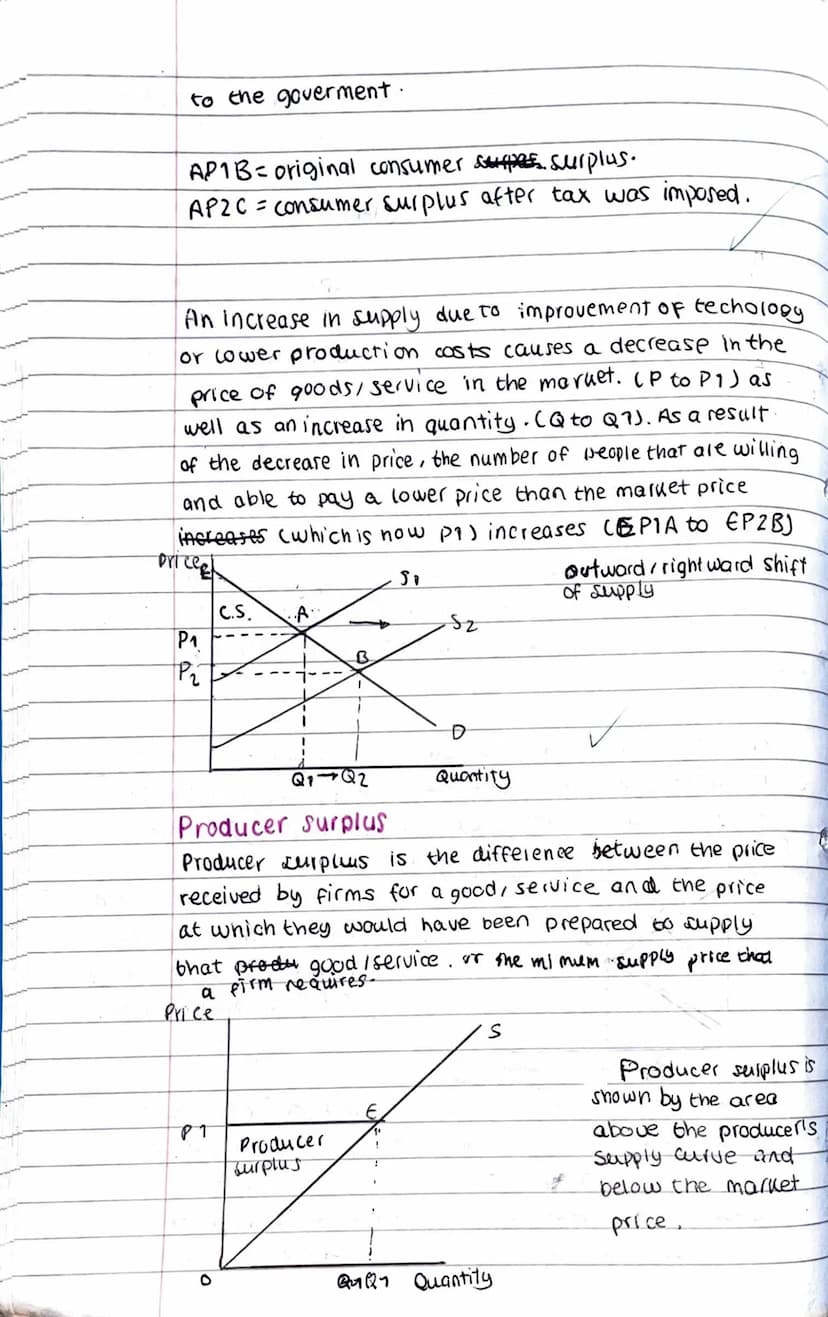 to the goverment.
AP1B = original consumer surplus.
AP2C = consumer surplus after tax was imposed.
An increase in supply due to improvement of techology
or lower production costs causes a decrease in the
price of goods/service in the market. (P to P1) as
well as an increase in quantity. (Q to Q1). As a result
of the decrease in price, the number of people that are willing
and able to pay a lower price than the market price
increases (which is now P1) increases (EP1A to EP2B)
Price
E
S1
outward/rightward shift
of supply
C.S.
A
S2
P1
B
P2
D
Q1→Q2
Quantity
Producer surplus
Producer surplus is the difference between the price
received by firms for a good/service and the price
at which they would have been prepared to supply
that produ good/service. or the mimum supply price that
a firm requires.
Price
S
Producer surplus is
shown by the area
above the producer's
supply curve and
below the market
price.
E
P1
Producer
surplus
0
Q1
Quantity